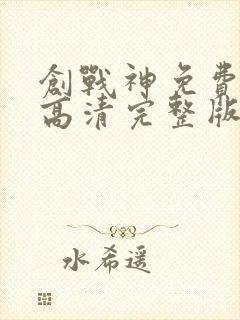 創戰神免費
高清完整版
水希遥